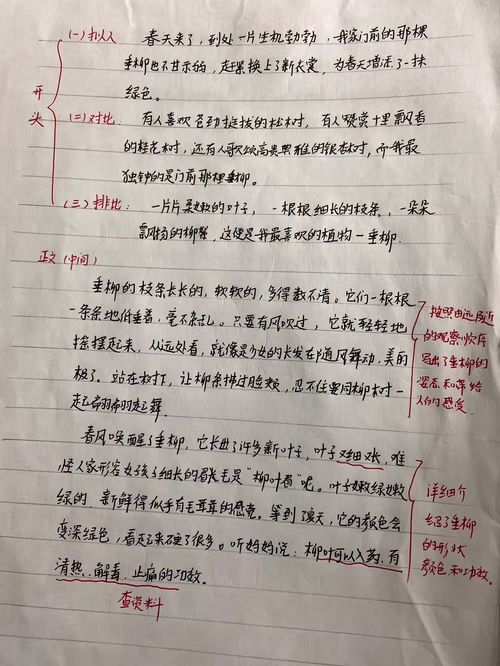 (一)拟人 春天来了,到处一片生机勃勃,我家门前的那棵
垂柳也不甘示弱,赶紧换上了新衣裳,为春天增添了一抹
绿色。
开头
(二)对比: 有人喜欢苍劲挺拔的松树,有人赞赏十里飘香
的桂花树,还有人歌颂高贵典雅的银杏树,而我最
独钟的是门前那棵垂柳。
(三)排比: 一片片柔嫩的叶子,一根根细长的枝条,一朵朵
飘扬的柳絮,这便是我最喜欢的植物—垂柳.
正文(中间)
垂柳的枝条长长的,软软的,多得数不清。它们一根根
一条条地低垂着,毫不杂乱。只要有风吹过,它就轻轻地
摇摆起来,从远处看,就像是少女的长发在随风舞动,美的
极了。站在树下,让柳条拂过脸颊,忍不住要同柳树一
起翩翩起舞。
按照由远及近
的观察顺序
写出了垂柳的
姿态和带给
人的感受。
春风唤醒了垂柳,它长出了许多新叶子,叶子又细又长,难
怪人家形容女孩子细长的眉毛是“柳叶眉”呢。叶子嫩绿嫩
绿的,新鲜得似乎有毛茸茸的感觉。等到夏天,它的颜色会
变深绿色,看起来硬了很多。听妈妈说:柳叶可以入药,有
清热、解毒、止痛的功效。
详细介
绍了垂柳
的形状
颜色和功效。
查资料